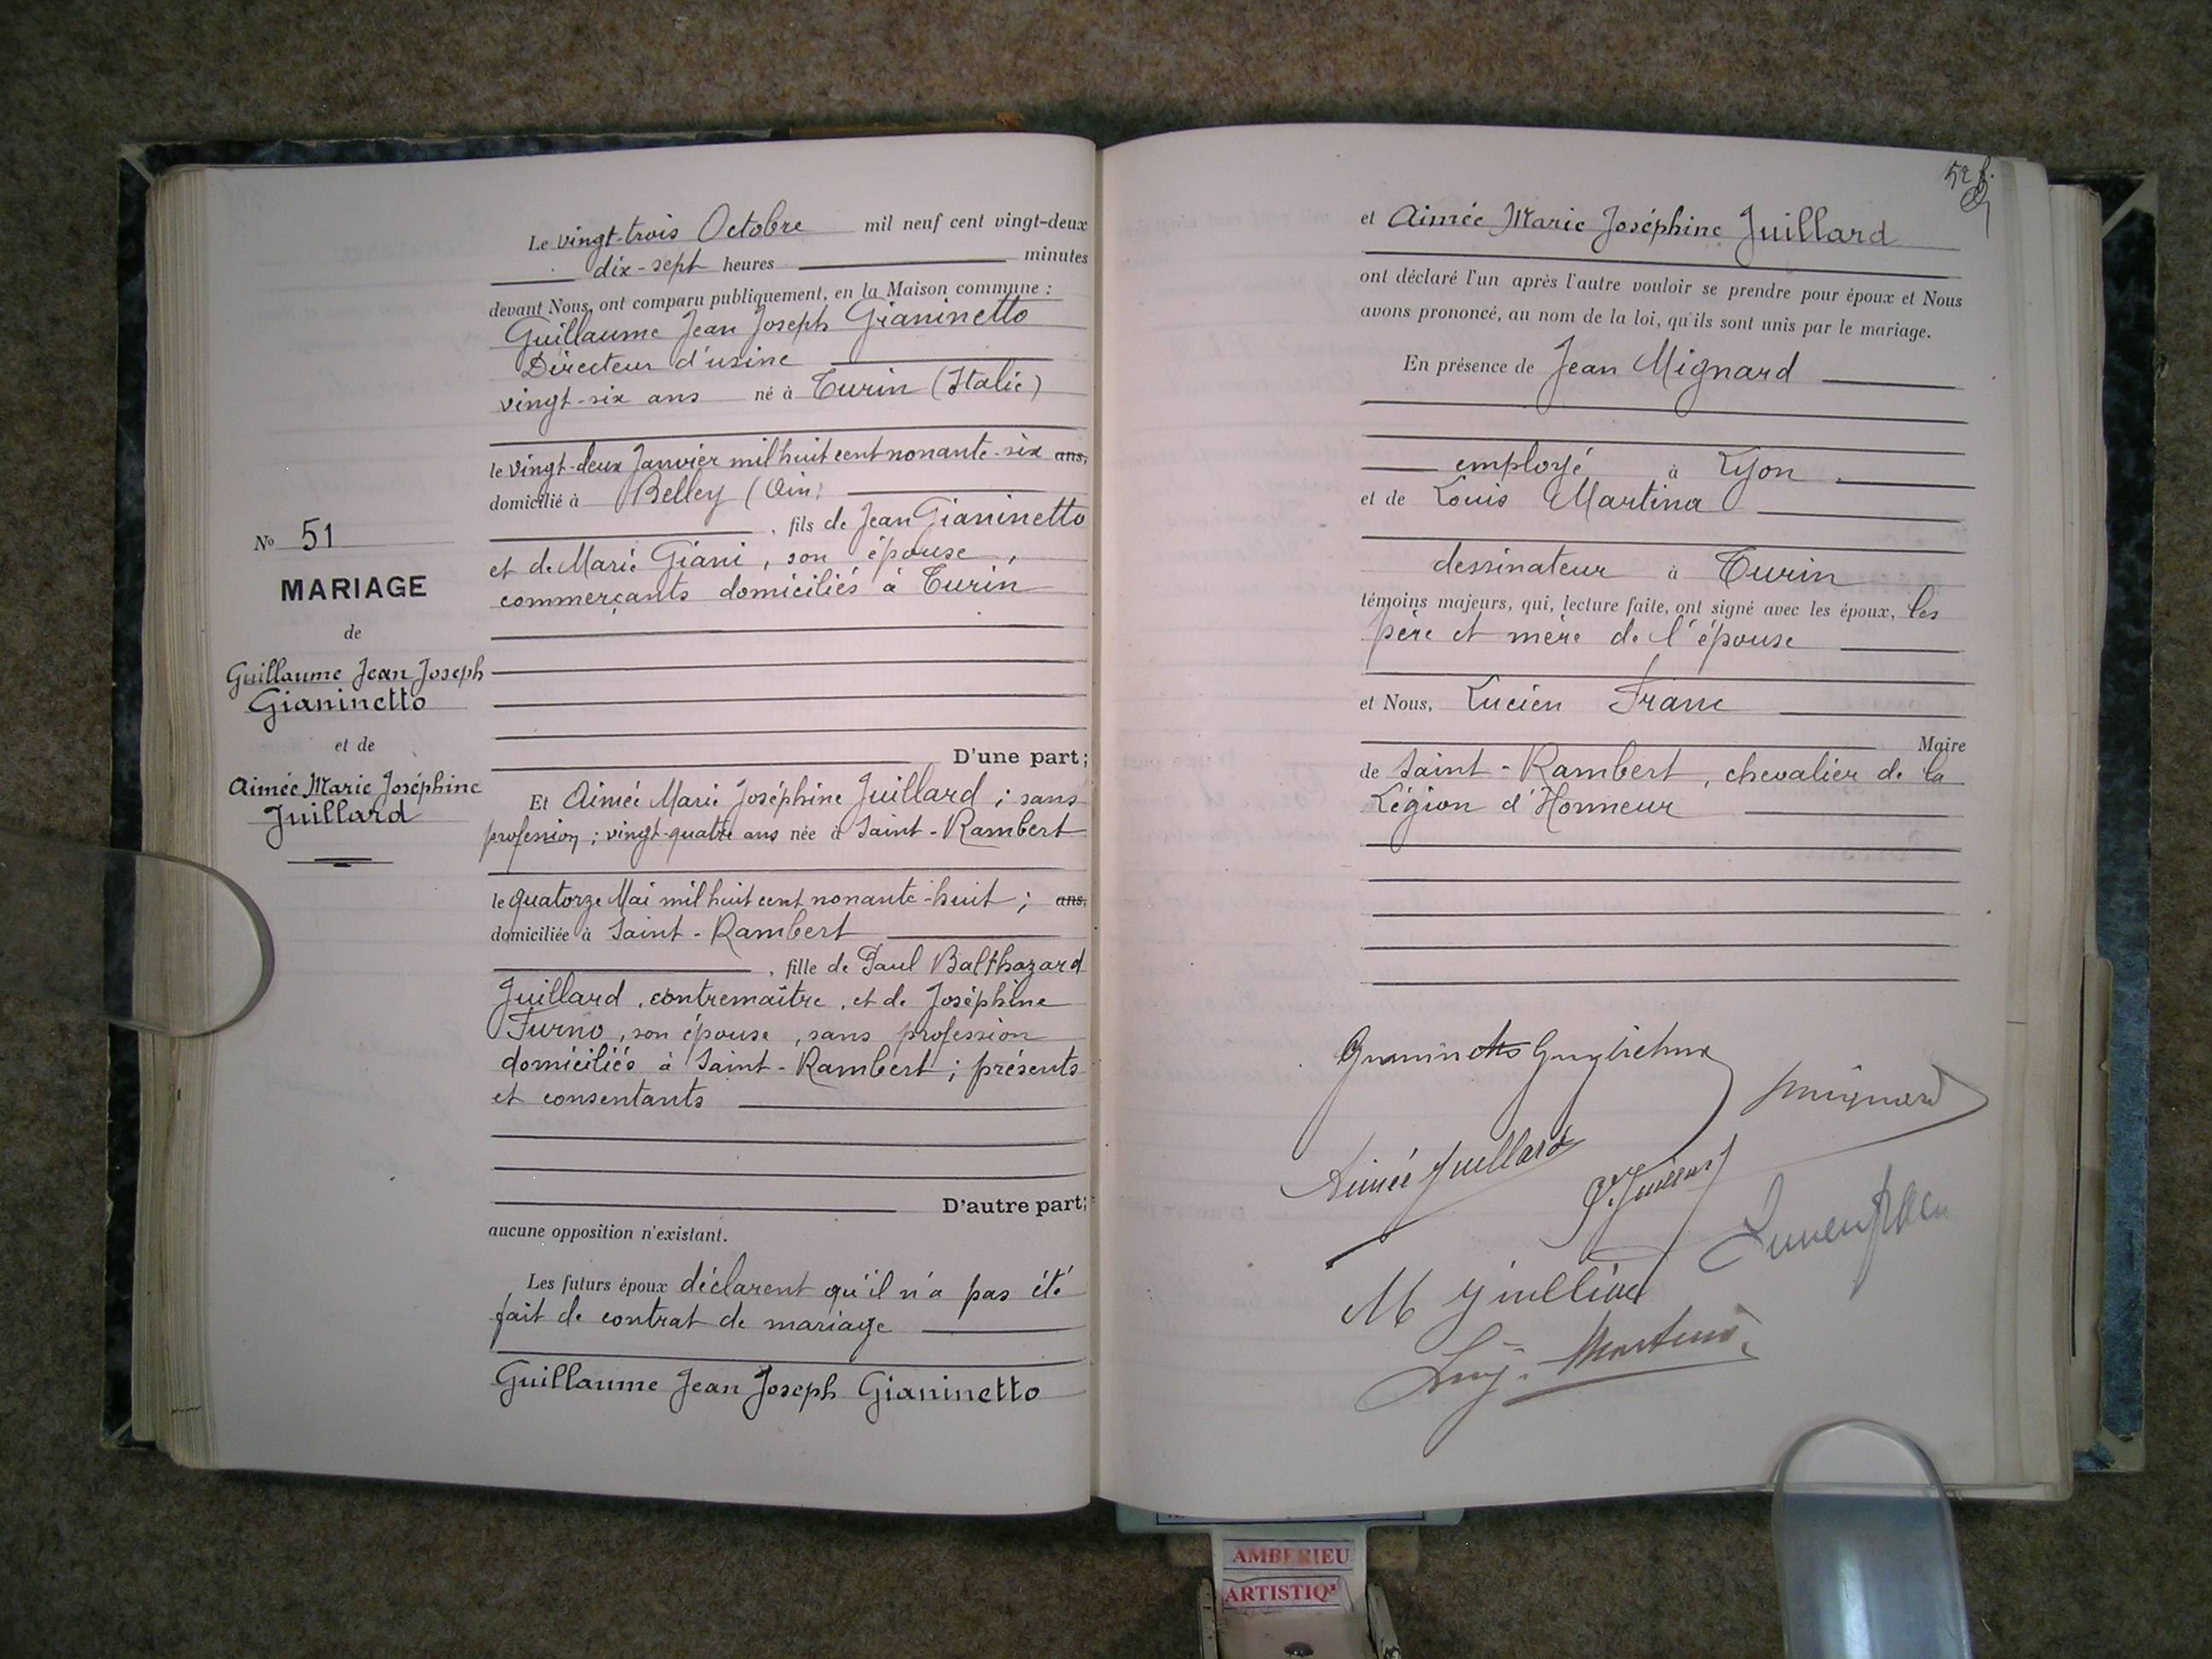 Le vingt-trois Octobre mil neuf cent vingt-deux
dix-sept heures minutes
devant Nous, ont comparu publiquement, en la Maison commune :
Guillaume Jean Joseph Gianinetto
Directeur d'usine
vingt-six ans né à Turin (Italie)
le vingt-deux Janvier mil huit cent nonante-six ans,
domicilié à Belley (Ain)
, fils de Jean Gianinetto
et de Marie Giani, son épouse,
commerçants domiciliés à Turin
D'une part;
Et Aimée Marie Joséphine Juillard ; sans
profession ; vingt-quatre ans née à Saint-Rambert
le quatorze Mai mil huit cent nonante-huit ; ans,
domiciliée à Saint-Rambert
, fille de Paul Balthazard
Juillard, contremaître, et de Joséphine
Furno, son épouse, sans profession
domiciliés à Saint-Rambert ; présents
et consentants
D'autre part;
aucune opposition n'existant.
Les futurs époux déclarent qu'il n'a pas été
fait de contrat de mariage
Guillaume Jean Joseph Gianinetto
No 51
MARIAGE
de
Guillaume Jean Joseph
Gianinetto
et de
Aimée Marie Joséphine
Juillard
et Aimée Marie Joséphine Juillard
ont déclaré l'un après l'autre vouloir se prendre pour époux et Nous
avons prononcé, au nom de la loi, qu'ils sont unis par le mariage.
En présence de Jean Mignard
employé à Lyon
et de Louis Martina
dessinateur à Turin
témoins majeurs, qui, lecture faite, ont signé avec les époux, les
père et mère de l'épouse
et Nous, Lucien Franc
Maire
de Saint-Rambert, chevalier de la
Légion d'Honneur
Aimée Juillard
AMBERIEU
ARTISTIQ